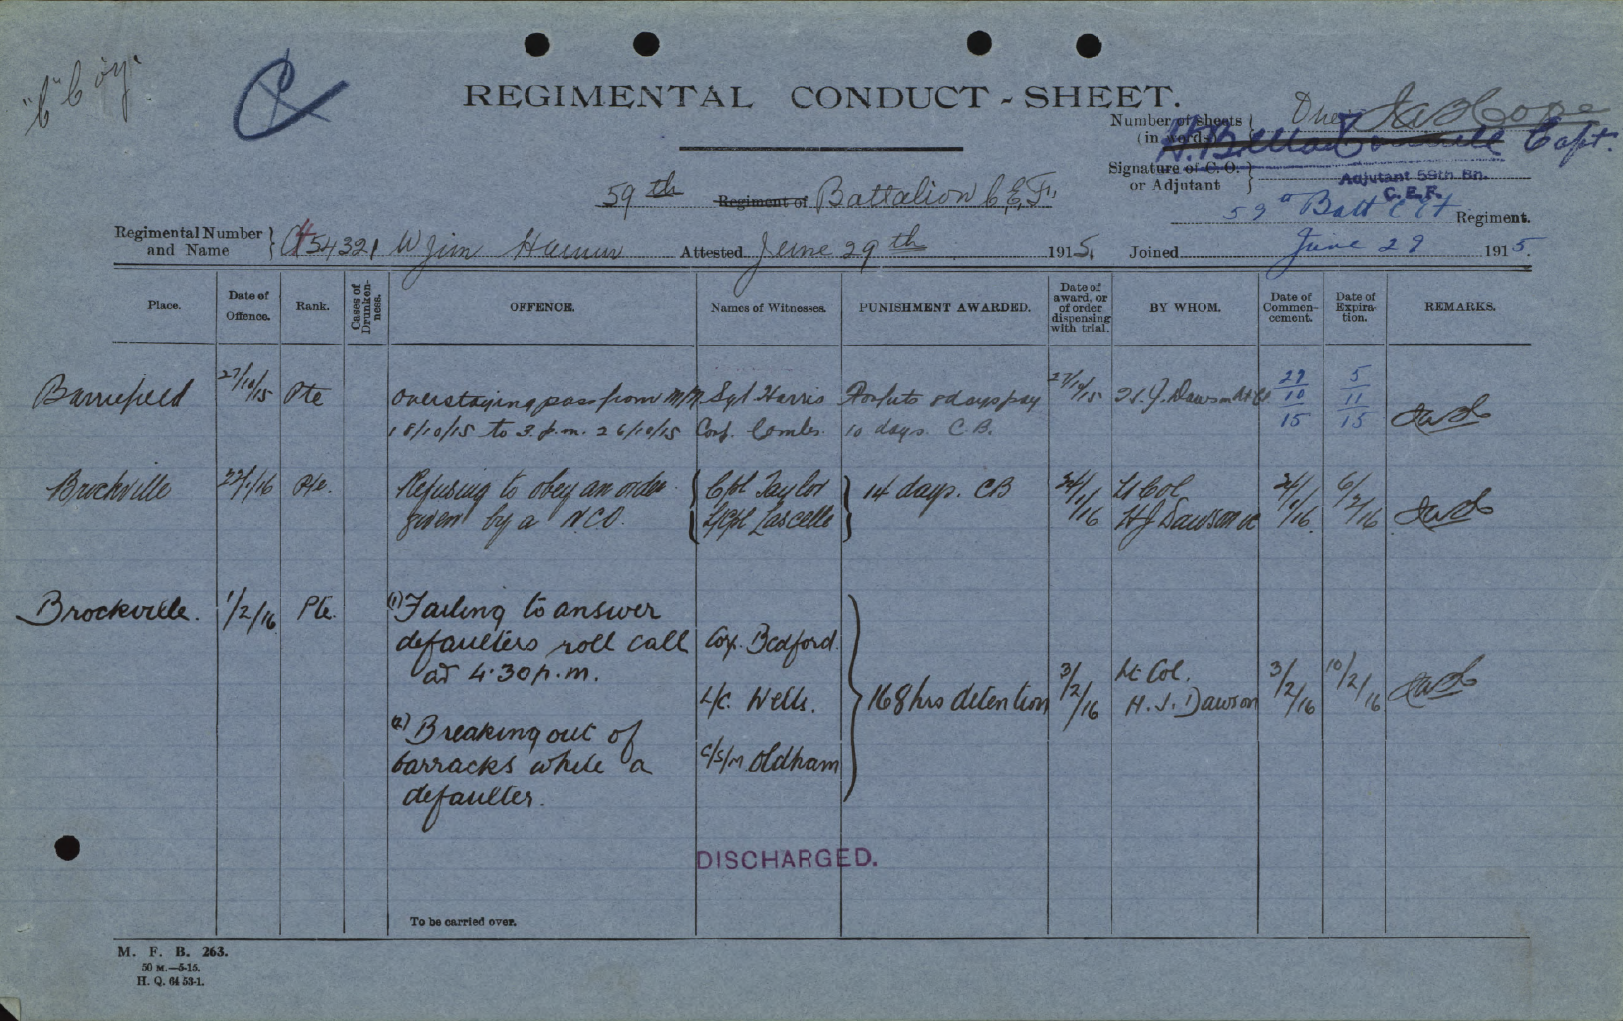 "C" Coy.
REGIMENTAL CONDUCT-SHEET.
Number of sheets (in words) One
Capt.
Signature of C. O. or Adjutant
Adjutant 59th Bn.
C. E. F.
59th Regiment of Battalion C.E.F.
59th Batt CEF Regiment.
Regimental Number and Name 454321 Attested June 29th 1915. Joined June 29 1915.
Place. Date of Offence. Rank. Cases of Drunkenness. OFFENCE. Names of Witnesses. PUNISHMENT AWARDED. Date of award, or of order dispensing with trial. BY WHOM. Date of Commencement. Date of Expiration. REMARKS.
Barriefield 27/10/15 Pte Overstaying pass from M/N Sgt Harris Forfeits 8 days pay 27/10/15 H.J. Dawson Lt Col 27/10/15 5/11/15
18/10/15 to 3 p.m. 26/10/15 Corp. Combs. 10 days. C.B.
Brockville 22/1/16 Pte. Refusing to obey an order Cpl Taylor 14 days. CB 24/1/16 Lt Col 24/1/16 6/2/16
given by a NCO. L/Cpl Lascelle H J Dawson oc
Brockville. 1/2/16 Pte. (1) Failing to answer
defaulters roll call Corp. Bedford.
at 4.30 p.m.
L/C. Wells. 168 hrs detention 3/2/16 Lt Col. H. J. Dawson 3/2/16 10/2/16
(2) Breaking out of
barracks while a C/S/M Oldham
defaulter.
DISCHARGED.
To be carried over.
M. F. B. 263.
50 M.—5-15.
H. Q. 64 53-1.